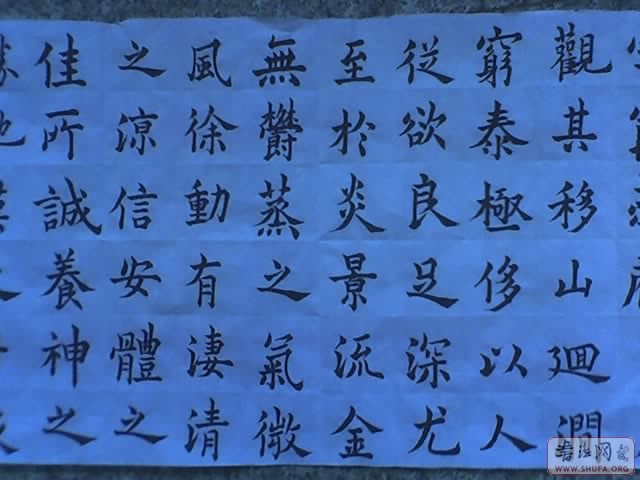 觀其移山廻澗
窮泰極侈以人
從欲良足深尤
至於炎景流金
無欝蒸之氣微
風徐動有淒清
之涼信安體之
佳所誠養神之
書法网
WWW.SHUFA.ORG